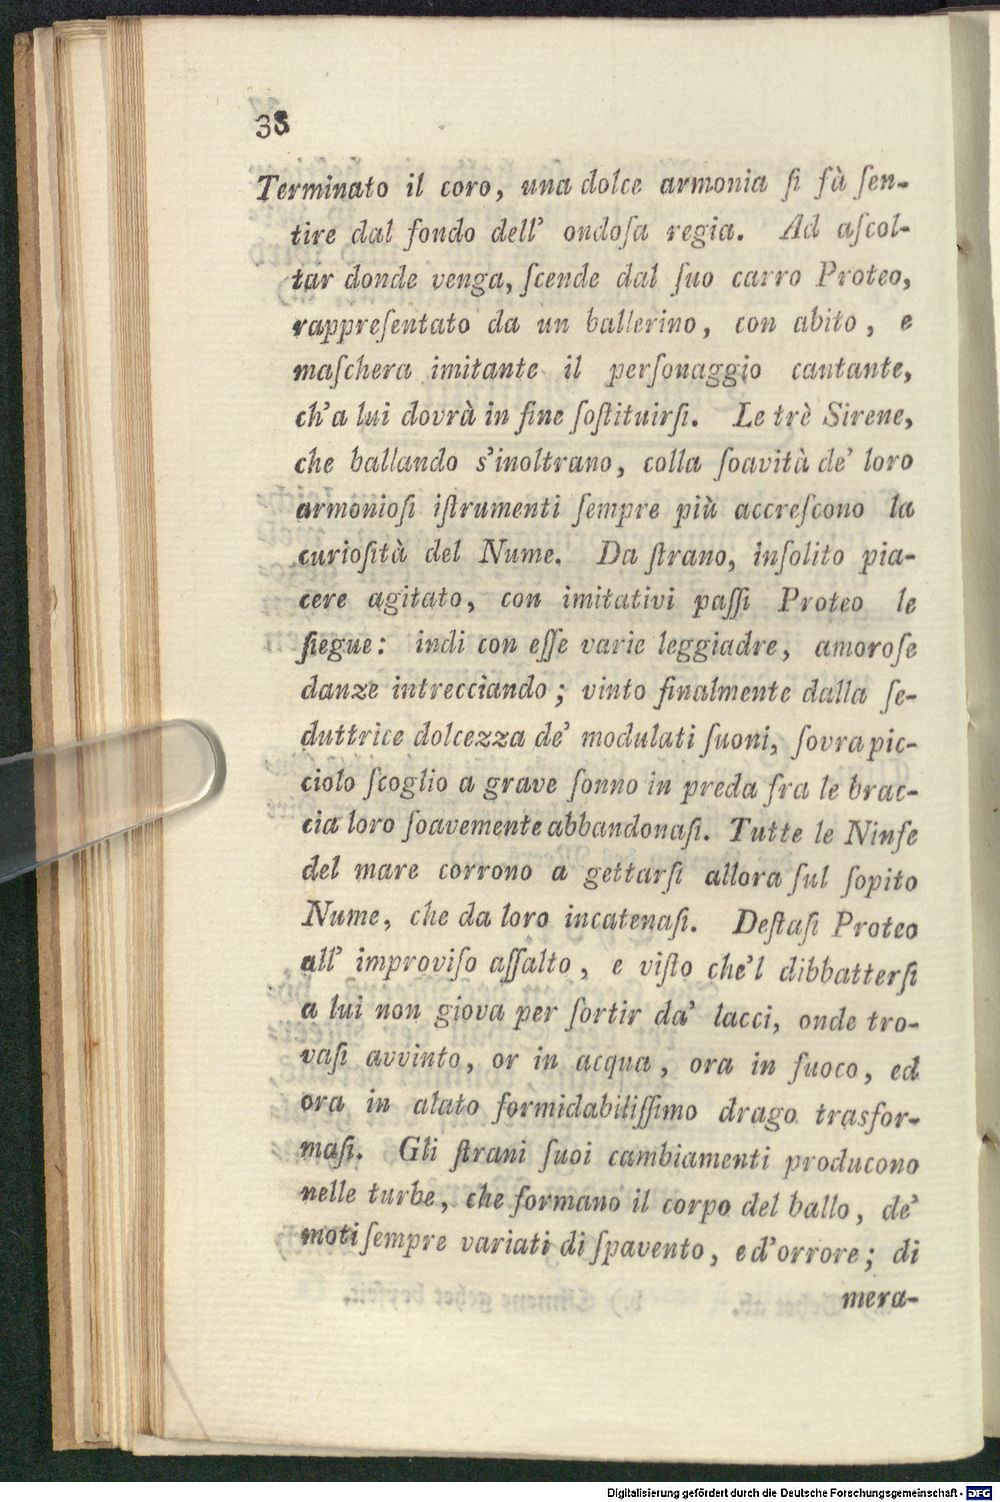 38
Terminato il coro, una dolce armonia ſi fà ſen-
tire dal fondo dell' ondoſa regia. Ad aſcol-
tar donde venga, ſcende dal ſuo carro Proteo,
rappreſentato da un ballerino, con abito, e
maſchera imitante il perſonaggio cantante,
ch'a lui dovrà in fine ſoſtituirſi. Le trè Sirene,
che ballando s'inoltrano, colla ſoavità de' loro
armonioſi iſtrumenti ſempre più accreſcono la
curioſità del Nume. Da ſtrano, inſolito pia-
cere agitato, con imitativi paſſi Proteo le
ſiegue: indi con eſſe varie leggiadre, amoroſe
danze intrecciando; vinto finalmente dalla ſe-
duttrice dolcezza de' modulati ſuoni, ſovra pic-
ciolo ſcoglio a grave ſonno in preda fra le brac-
cia loro ſoavemente abbandonaſi. Tutte le Ninfe
del mare corrono a gettarſi allora ſul ſopito
Nume, che da loro incatenaſi. Deſtaſi Proteo
all' improviſo aſſalto, e viſto che'l dibbatterſi
a lui non giova per ſortir da' lacci, onde tro-
vaſi avvinto, or in acqua, ora in fuoco, ed
ora in alato formidabiliſſimo drago trasfor-
maſi. Gli ſtrani ſuoi cambiamenti producono
nelle turbe, che formano il corpo del ballo, de'
moti ſempre variati di ſpavento, e d'orrore; di
mera-
Digitalisierung gefördert durch die Deutsche Forschungsgemeinschaft - DFG